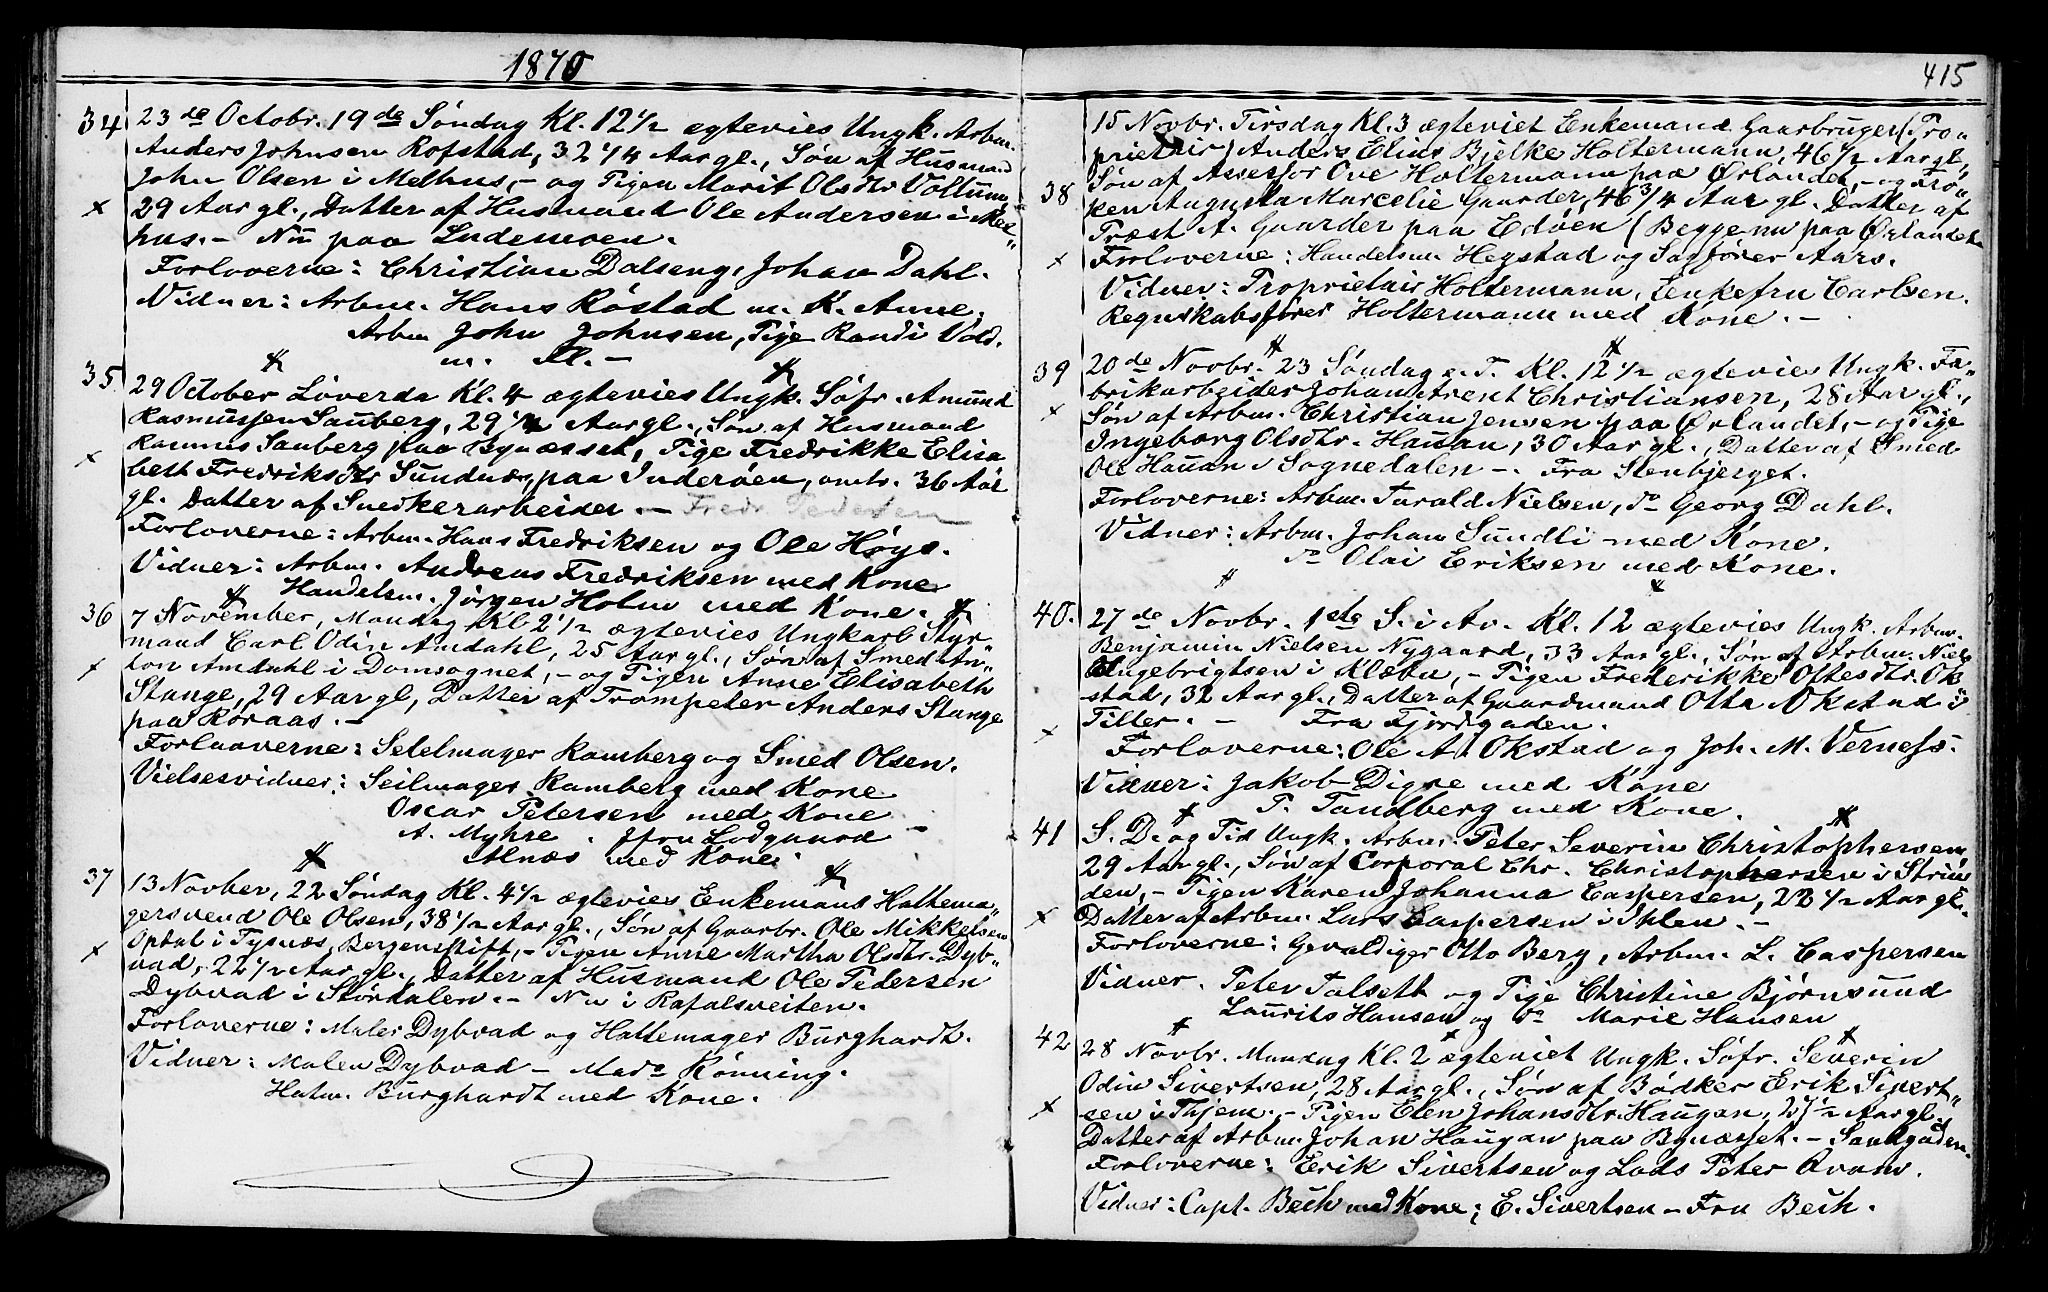 1870
34 23de Octobr. 19de Søndag Kl. 12 1/2 ægtevies Ungk. Arbm.
Anders Johnsen Rofstad, 32 1/4 Aar gl., Søn af Husmand
John Olsen i Melhus,- og Pigen Marit Olsdtr Vollum,
29 Aar gl., Datter af Husmand Ole Andersen i Mel"
hus.- Nu paa Lademoen.
Forloverne: Christian Dalseng, Johan Dahl.
Vidner: Arbm. Hans Röstad m. K. Anne,
Arbm John Johnsen, Pige Randi Vold.
m. Fl.-
35 29 October Löverda Kl. 4 ægtevies Ungk. Söfr. Amund
Rasmussen Sauberg, 29 Aar gl., Søn af Husmand
Rasmus Sauberg paa Bynæsset, Pige Fredrikke Elisa
beth Fredriksdtr Sundnæs, paa Inderøen, omtr. 36 Aar
gl. Datter af Snedkerarbeider.- Fredr. Pedersen
Forloverne: Arbm. Hans Fredriksen og Ole Høys.
Vidner: Arbm. Andreas Fredriksen med Kone
Handelsm. Jörgen Holm med Kone.
36 7 November, Mandag Kl 2 1/2 ægtevies Ungkarl Styr"
mand Carl Odin Amdahl, 25 Aar gl., Søn af Smed An"
ton Amdahl i Domsognet,- og Pigen Anne Elisabeth
Stange, 29 Aar gl, Datter af Trompeter Anders Stange
paa Röraas.-
Forlaaverne: Seielmager Ramberg og Smed Olsen.
Vielsesvidner: Seilmager Ramberg med Kone
Oscar Petersen med Kone
A. Myhre. Jfru Lodgaard
Alnæs med Kone.
37 13 Novber, 22 Søndag Kl. 4 1/2 ægtevies Enkemans Hattema"
gersvend Ole Olsen, 38 1/2 Aar gl., Søn af Gaarbr. Ole Mikkelsen
Opdal i Tysnæs, Bergenstift,- Pigen Anne Martha Olsdtr. Dyb"
vad, 22 1/2 Aar gl., Datter af Husmand Ole Pedersen
Dybvad i Størdalen.- Nu i Rafalsveiten.
Forloverne: Maler Dybvad og Hattemager Burghardt.
Vidner: Maler Dybvad - Mar. Rönning.
Hatm. Burghardt med Kone.
415
15 Novbr. Tirsdag Kl. 3 ægteviet Enkemand Gaarbruger (Pro"
prietair) Anders Elius Bjelke Holtermann, 46 1/2 Aar gl,
38 Søn af Assessor Ove Holtermann paa Ørlandet,- og Frö"
ken Augusta Marcelie Gaarder, 46 3/4 Aar gl. Datter af
Præst A. Gaarder paa Edöen (Begge nu paa Ørlandet.
Forloverne: Handelsm. Hegstad og Sagfører Aars.
Vidner: Proprietair Holtermann, Enkefru Carlsen.
Regnskabsfører Holtermann med Kone.-
39 20de Novbr. 23 Søndag e. T. Kl. 12 1/2 ægtevies Ungk. Fa"
brikarbeider Johan Arent Christiansen, 28 Aar gl.,
Søn af Arbm. Christian Jensen paa Ørlandet,- og Pige
Ingeborg Olsdtr. Hauan, 30 Aar gl., Datter af Smed
Ole Hauan i Sognedalen -. Fra Stenbjerget.
Forloverne: Arbm. Tarald Nielsen, do Georg Dahl.
Vidner: Arbm. Johan Sundli med Kone.
do Olai Eriksen med Kone.
40. 27de Novbr. 1ste S. i Av. Kl. 12 ægtevies Ungk. Arbm.
Benjamin Nielsen Nygaard, 33 Aar gl., Søn af Arbm. Niels
Engebrigtsen i Klæbu,- Pigen Frederikke Oftesdtr. Ok
stad, 32 Aar gl., Datter af Gaardmand Otta Okstad i
Tiller.- Fra Fjordgaden.
Forloverne: Ole A. Okstad og Joh. M. Verness.
Vidner: Jakob Digre med Kone
P. Tandberg med Kone.
41 S. D. og Tid Ungk. Arbm. Peter Severin Christophersen,
29 Aar gl., Søn af Corporal Chr. Christophersen i Strin
den,- Pigen Karen Johanna Caspersen, 22 1/2 Aar gl.
Datter af Arbm. Lars Caspersen i Ihlen.-
Forloverne: Gevaldiger Otto Berg, Arbm. L. Caspersen
Vidner. Peter Talsett og Pige Christine Bjørnsund
Laurits Hansen og do Marie Hansen
42 28 Novbr. Mandag Kl. 2 ægteviet Ungk. Söfr. Severin
Odin Sivertsen, 28 Aar gl., Søn af Bødker Erik Sivert"
sen i Thjem.- Pigen Elen Johansdtr. Haugan, Aar gl.
Datter af Arbm. Johan Haugan paa Bynæsset.- Sandgaden.
Forloverne: Erik Sivertsen og Lods Peter
Vidner: Capt. Bech med Kone; E. Sivertsen - Fru Bech.